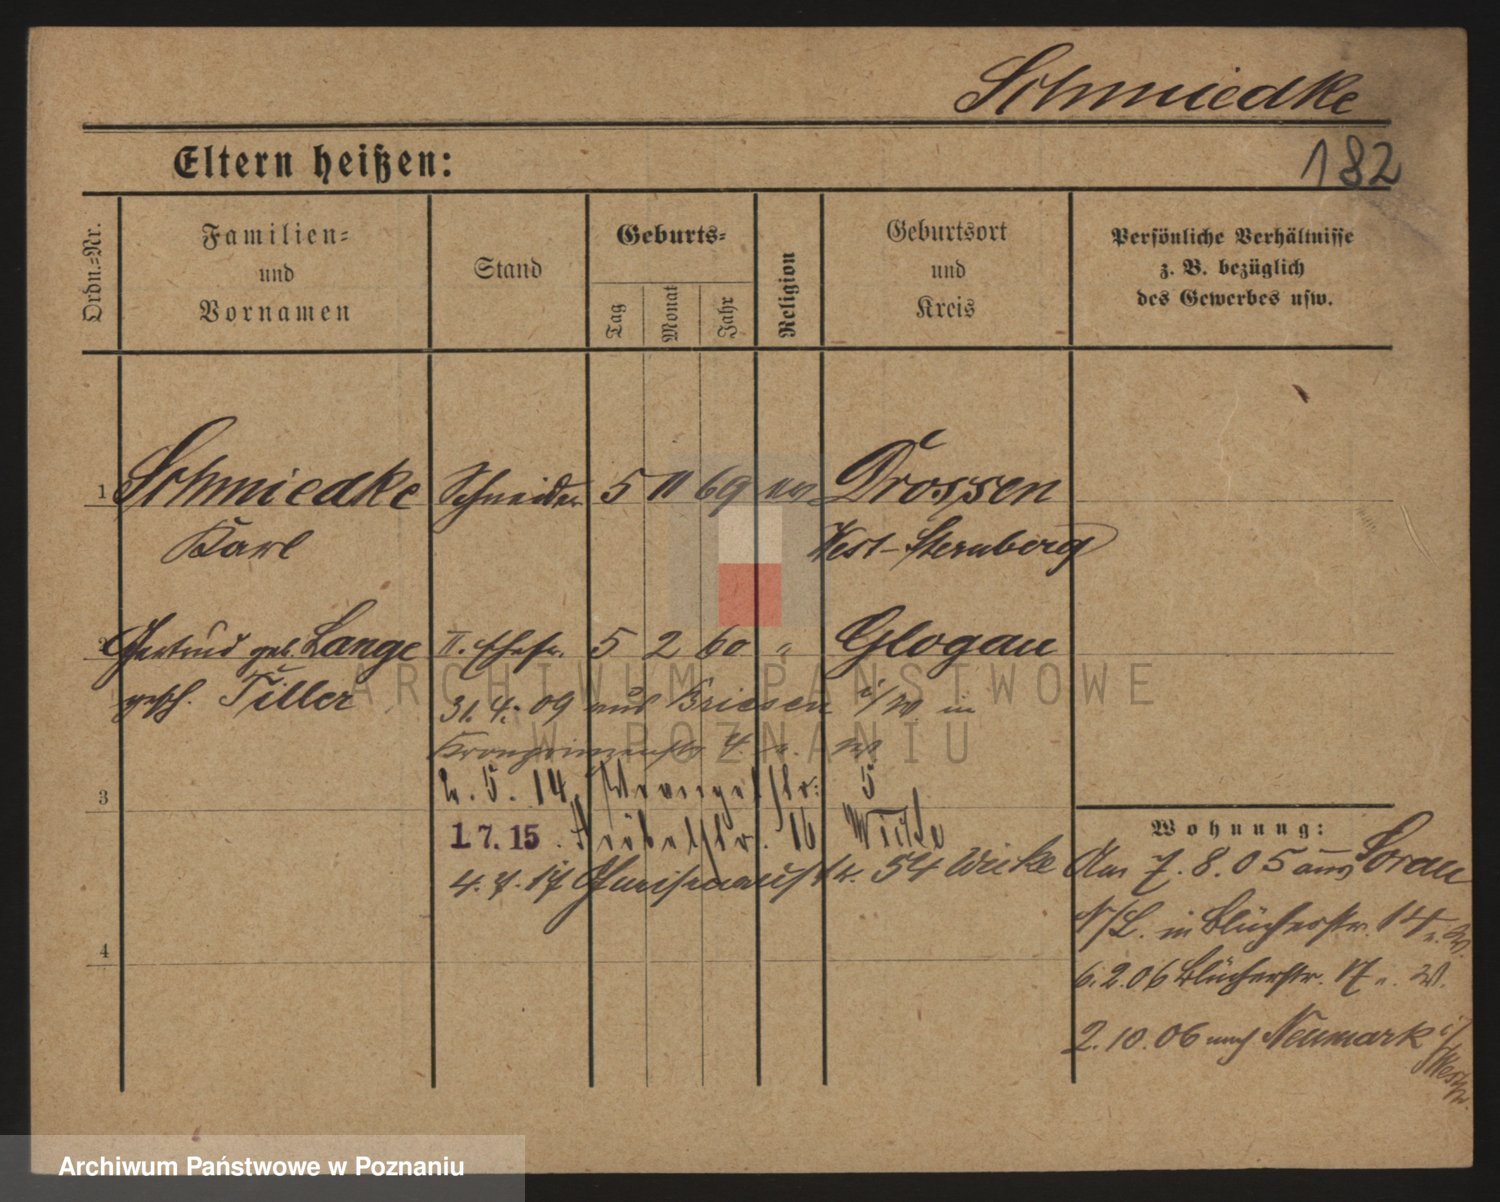 Schmiedke
182
Eltern heißen:
Ordn.-Nr.
Familien-
und
Vornamen
Stand
Geburts-
Tag
Monat
Jahr
Religion
Geburtsort
und
Kreis
Persönliche Verhältnisse
z. B. bezüglich
des Gewerbes usw.
1 Schmiedke Schneider 5 11 69 ev Drossen
Karl West-Sternberg
2 Gertrud geb. Lange II. Ehefr. 5 2 60 " Glogau
gesch. Tiller
31. 4. 09 aus Briesen i/W in
Kronprinzenstr. 4.
3
2. 5. 14 Wrangelstr. 5
1.7.15. 16 Wilda
4. 7. 17 54 Wilda
4
Wohnung:
Am 7. 8. 05 aus Sorau
N/L. in Blücherstr. 14
6. 2. 06 Blücherstr. 17
2. 10. 06 nach Neumark i/
Westpr.
ARCHIWUM PAŃSTWOWE
W POZNANIU
Archiwum Państwowe w Poznaniu